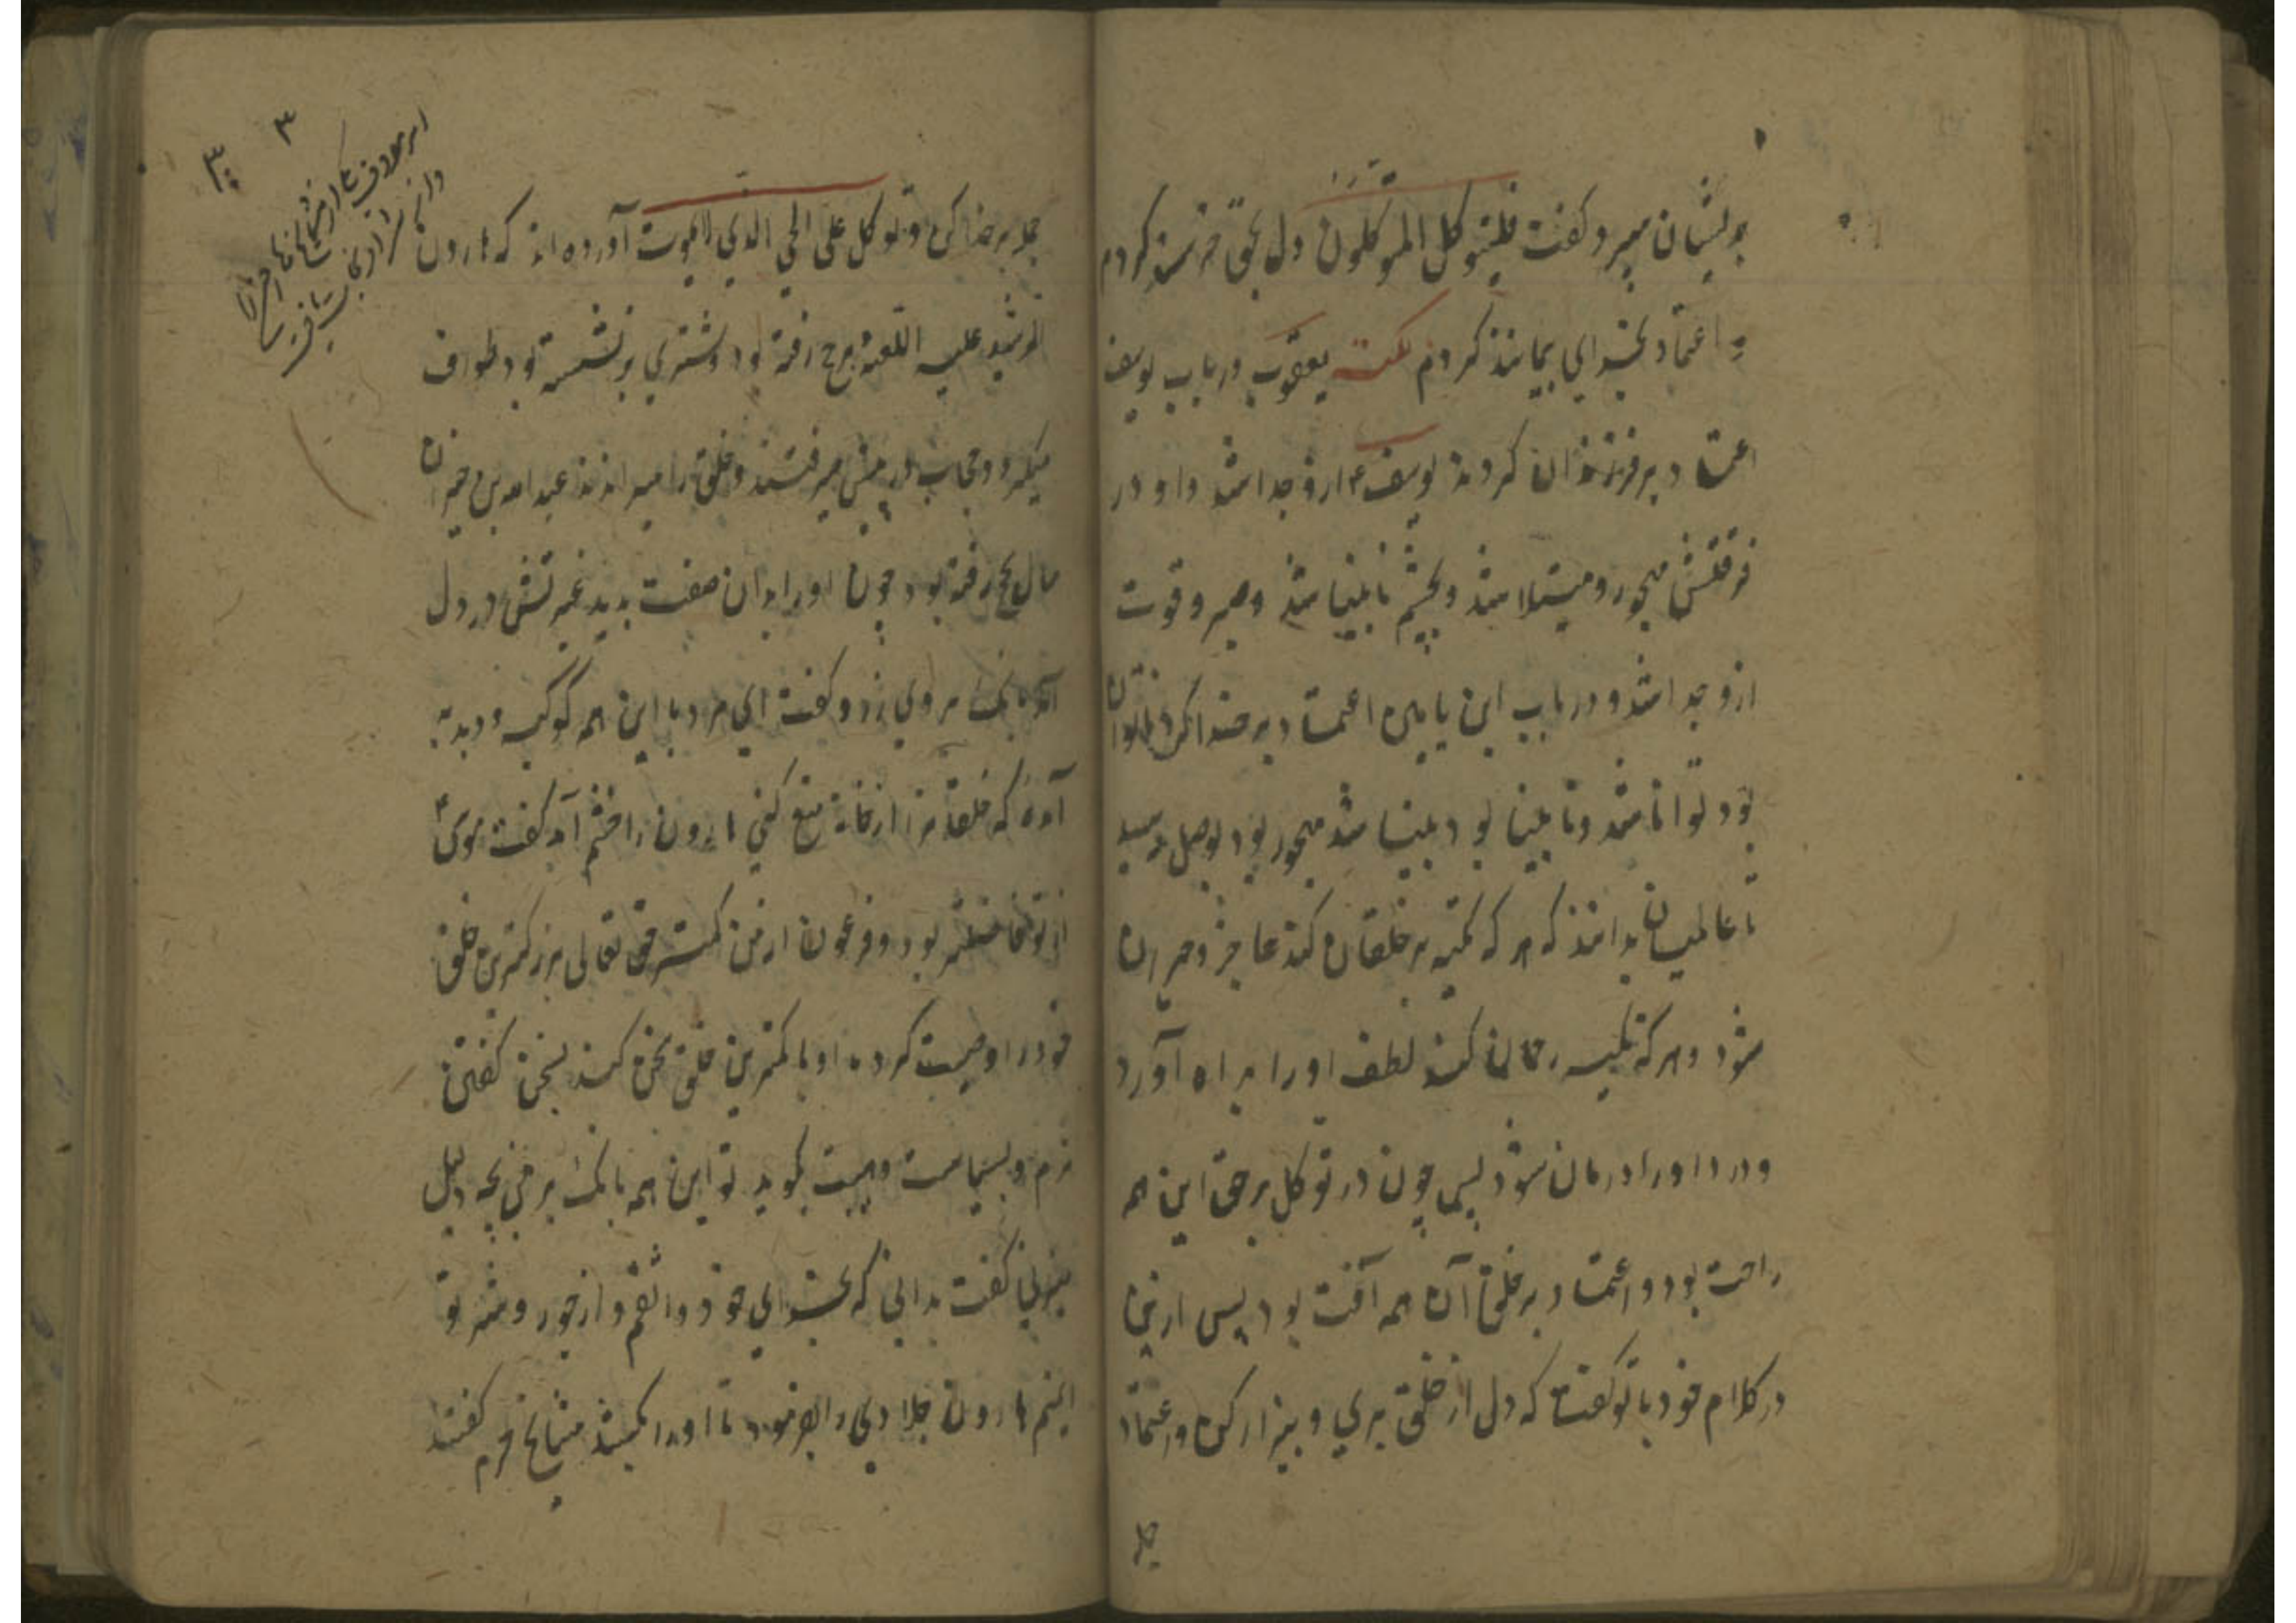 بدیشان سپرد و کفت فلیتوکل المتوکلون دل بحق خرسند کردم
و اعتماد بخدای بیمانند کردم نکته یعقوب در باب یوسف
اعتماد بر فرزندان کرد یوسف ازو جدا شد و او در
فرقتش مهجور و مبتلا شد و بچشم نابینا شد و صبر و قوت
ازو جدا شد و در باب ابن یامین اعتماد بر خدا کرد ناتوان
بود توانا شد و نابینا بود بینا شد مهجور بود بوصل رسید
تا عالمیان بدانند که هر که تکیه بر خلقان کند عاجز و حیران
شود و هر که تکیه بر رحمان کند لطف او را براه آورد
و درد او را درمان شود پس چون در توکل بر حق این همه
راحت بود و اعتماد بر خلق آن همه آفت بود پس ازین
در کلام خود با تو کفت که دل از خلق بری و بیزار کن و اعتماد
جمله
جمله بر خدا کن و توکل علی الحی الذی لا یموت آورده اند که هارون
الرشید علیه اللعنه بحج رفته بود و شتری بر نشسته بود طواف
میکرد و حجاب در پیش میرفتند و خلق را میراندند عبد الله بن
سال بحج رفته بود چون او را بدان صفت بدید غیرتش در دل
آمد بانک بروی زد و کفت ای مرد با این همه کوکبه و دبدبه
آمده که خلق را از خانه منع کنی هارون را خشم آمد کفت موسی
از تو فاضلتر بود و فرعون از من کمتر حق تعالی بزرکترین خلق
خود را وصیت کرد که او با کمترین خلق سخن کند بسخن کفتن
نرم و بسیاست و هیبت نکوید تو این همه بانک بر من بچه دلیل
میزنی کفت بدانی که بخدای خود واثقم و از جور و شر تو
ایمنم هارون جلادی را بفرمود تا او را بکشد مشایخ حرم کفتند